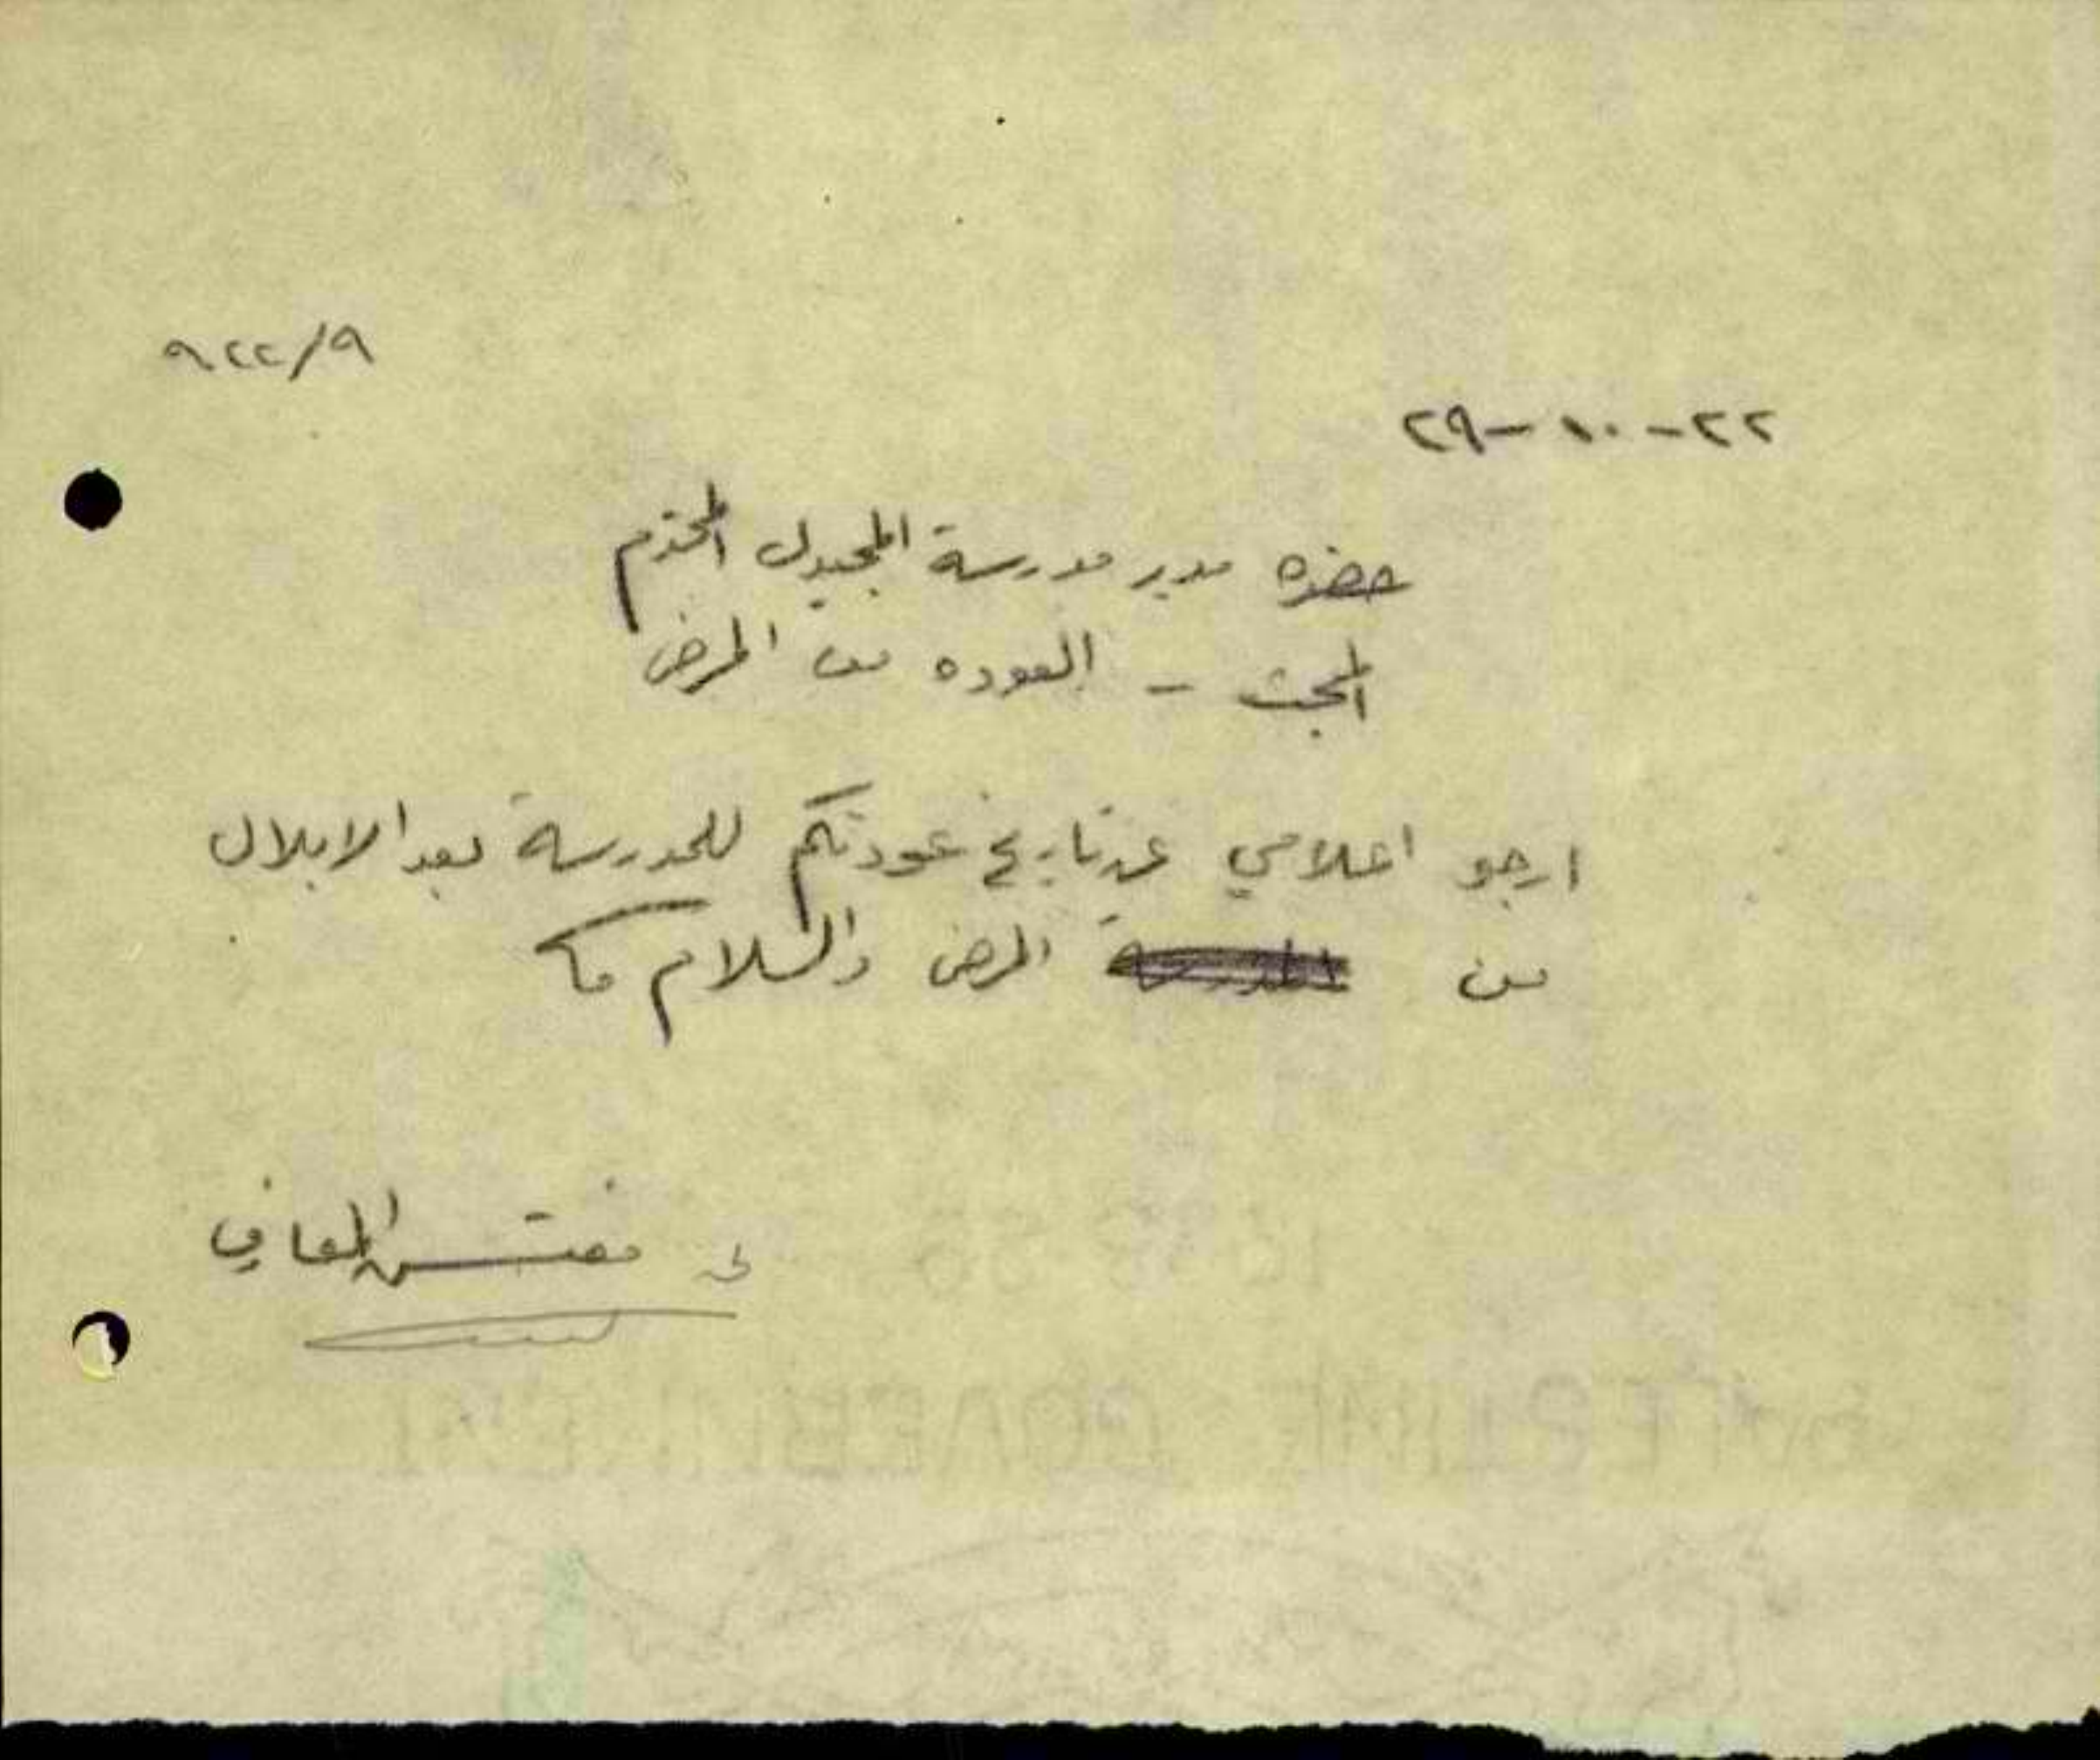 ٩٢٢/٩
٢٢-١٠-٢٩
حضرة مدير مدرسة المجيدل المحترم
المبحث - العوده من المرض
ارجو اعلامي عن تاريخ عودتكم للمدرسة بعد الابلال
من المرض والسلام
مفتش المعارف
PALESTINE GOVERNMENT